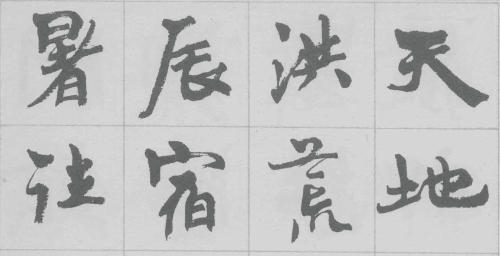 天地
洪荒
辰宿
暑往